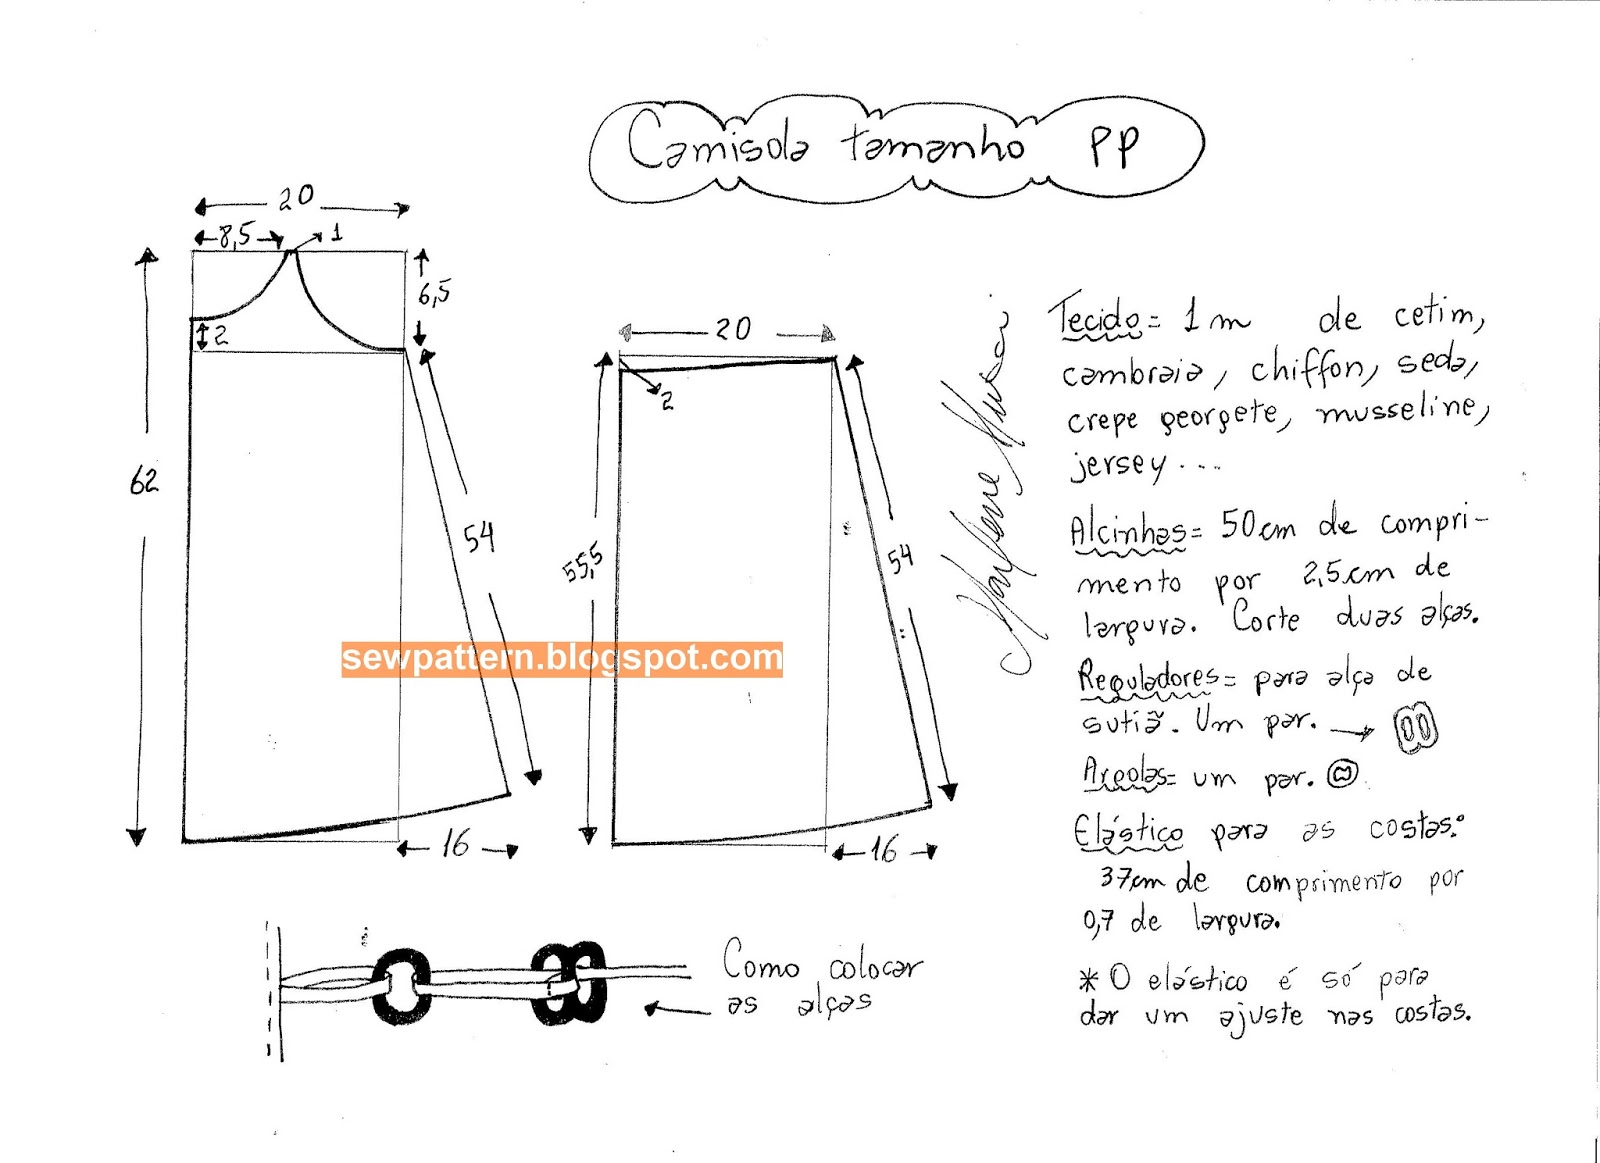 Camisola tamanho PP
20
8,5
1
6,5
2
62
54
16
20
2
55,5
54
16
sewpattern.blogspot.com
Marlene Mukai
Tecido = 1m de cetim,
cambraia, chiffon, seda,
crepe georgete, musseline,
jersey...
Alcinhas = 50cm de compri-
mento por 2,5cm de
largura. Corte duas alças.
Reguladores = para alça de
sutiã. Um par.
Argolas = um par.
Elástico para as costas:
37cm de comprimento por
0,7 de largura.
* O elástico é só para
dar um ajuste nas costas.
Como colocar
as alças